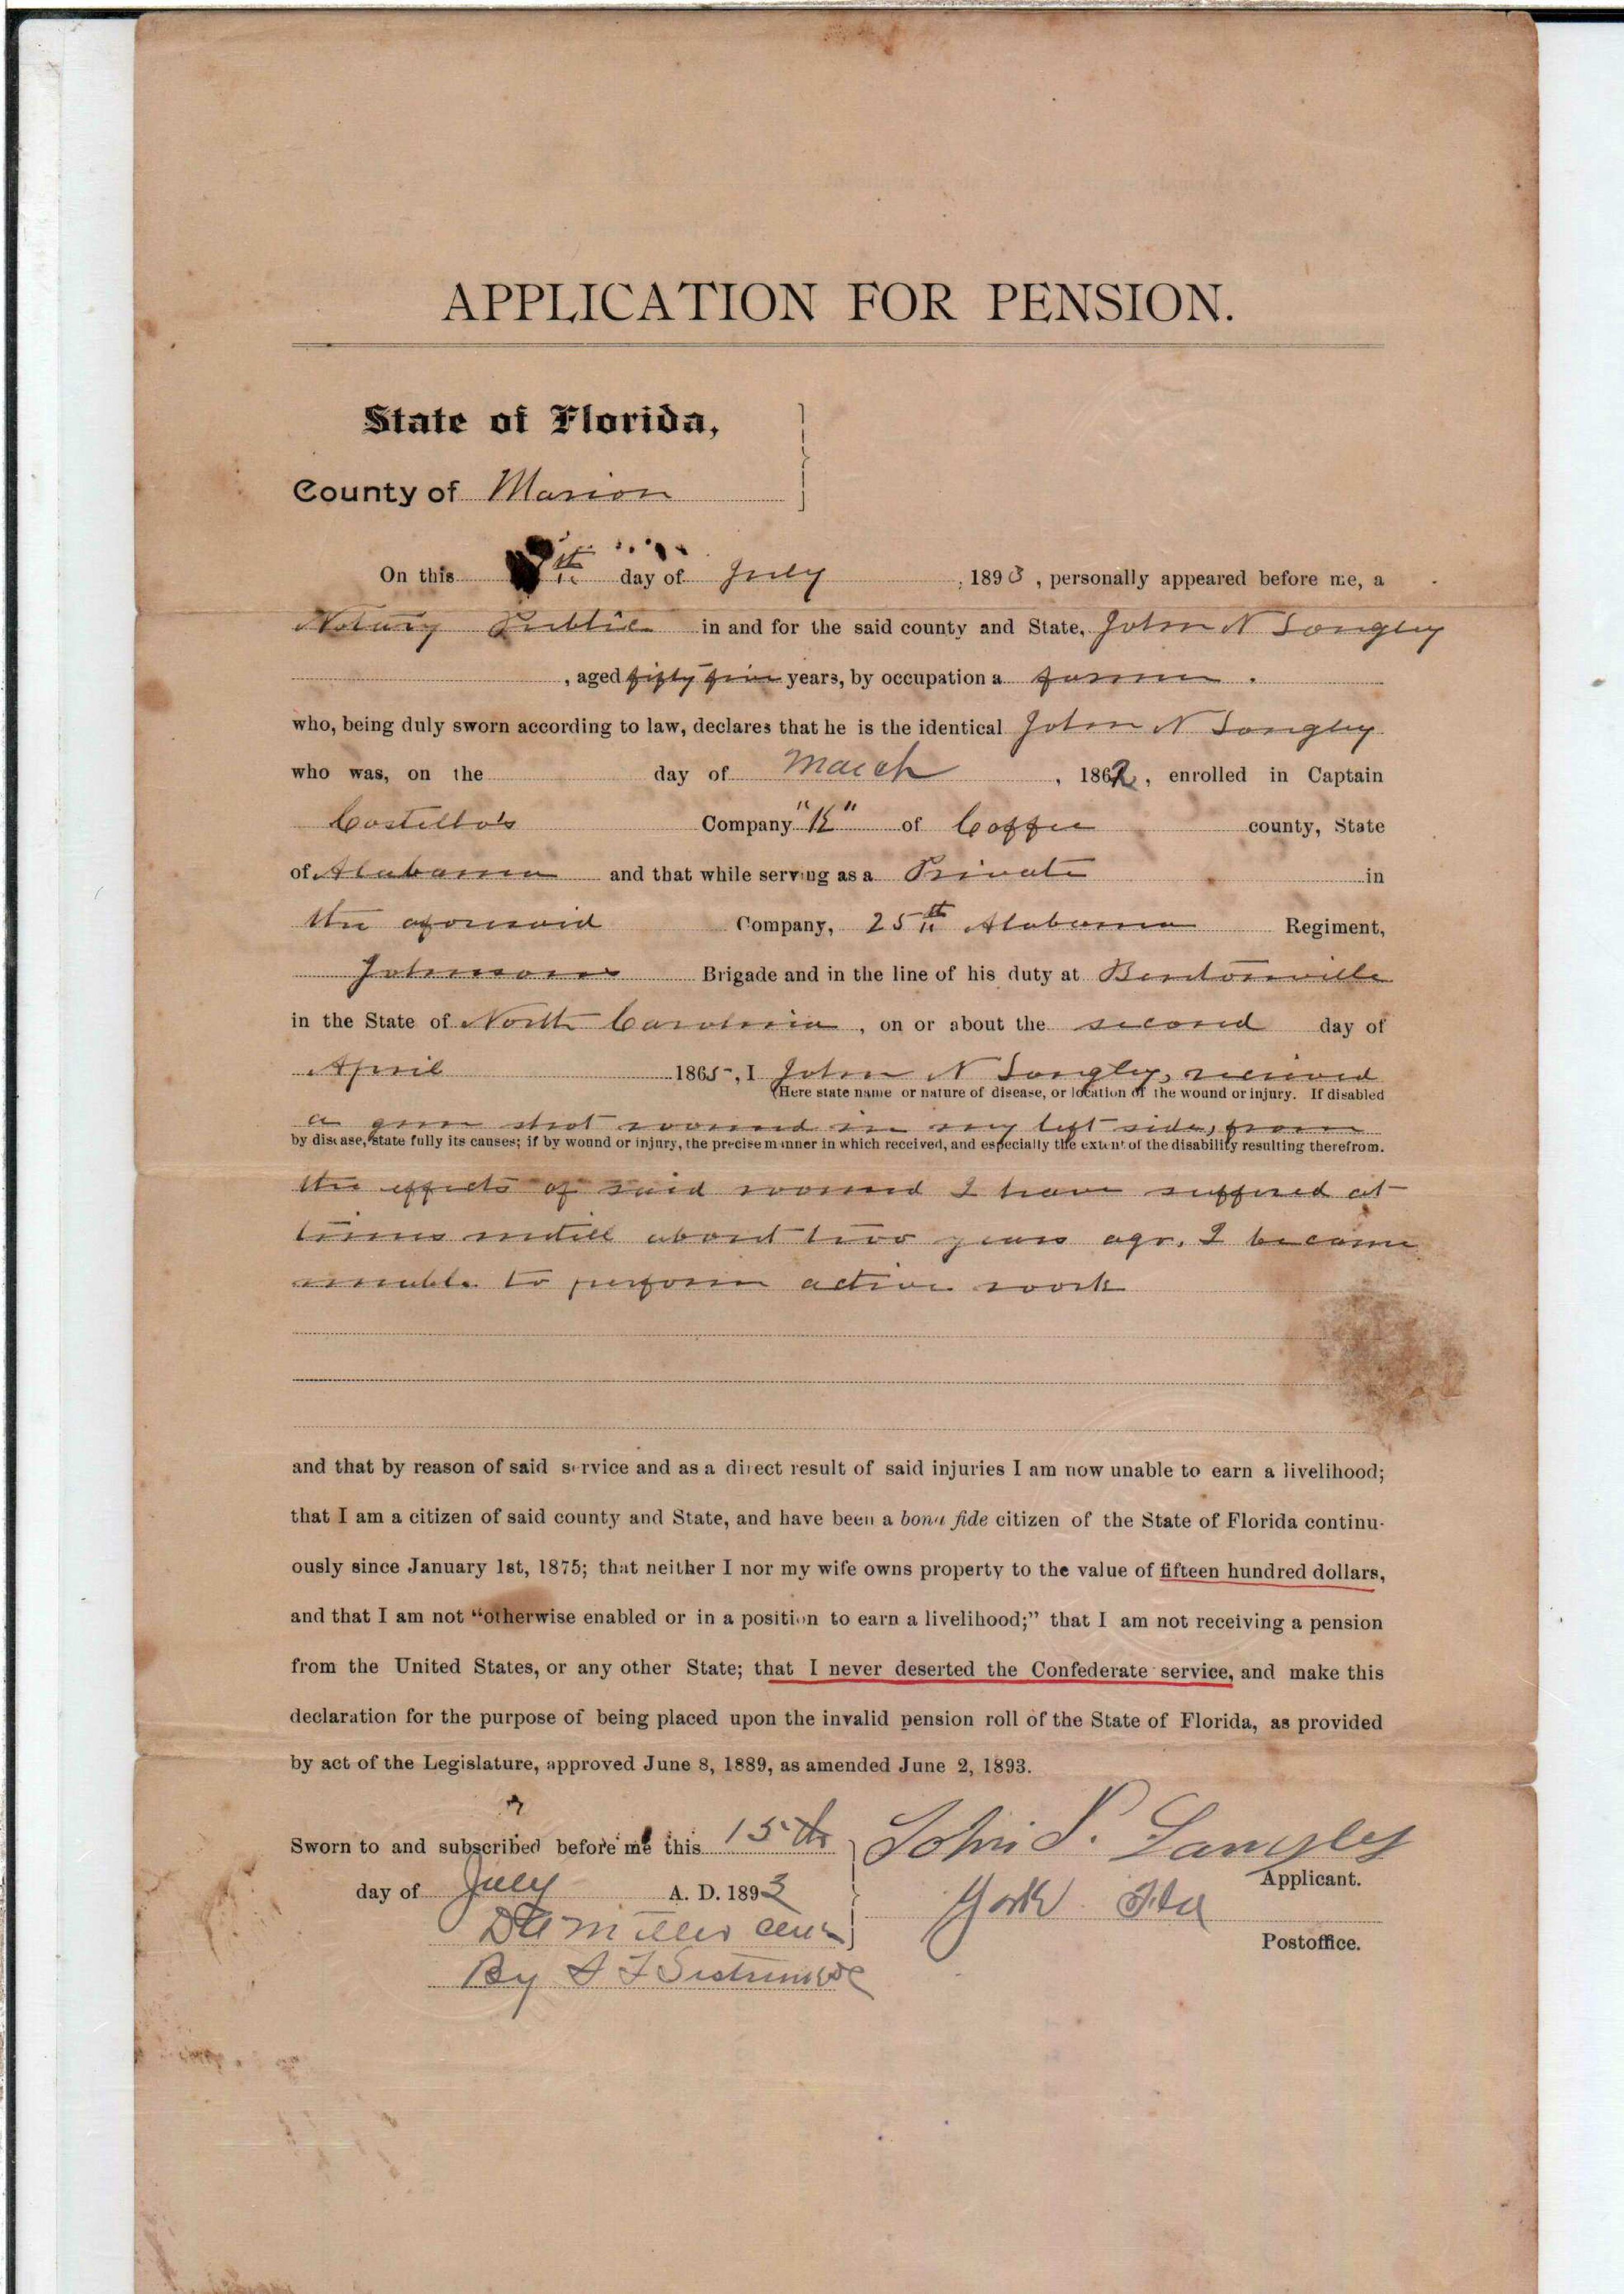 APPLICATION FOR PENSION.
State of Florida,
County of Marion
On this th day of July, 1893, personally appeared before me, a
Notary Public in and for the said county and State, John N Langley
, aged fifty five years, by occupation a farmer.
who, being duly sworn according to law, declares that he is the identical John N Langley
who was, on the day of March, 1862, enrolled in Captain
Costello's Company "K" of Coffee county, State
of Alabama and that while serving as a Private in
the aforesaid Company, 25th Alabama Regiment,
Johnsons Brigade and in the line of his duty at Bentonville
in the State of North Carolina, on or about the second day of
April 1865, I John N Langley, received
(Here state name or nature of disease, or location of the wound or injury. If disabled
a gun shot wound in my left side, from
by disease, state fully its causes; if by wound or injury, the precise manner in which received, and especially the extent of the disability resulting therefrom.
the effects of said wound I have suffered at
times untill about two years ago. I became
unable to perform active work
and that by reason of said service and as a direct result of said injuries I am now unable to earn a livelihood;
that I am a citizen of said county and State, and have been a bona fide citizen of the State of Florida continu-
ously since January 1st, 1875; that neither I nor my wife owns property to the value of fifteen hundred dollars,
and that I am not "otherwise enabled or in a position to earn a livelihood;" that I am not receiving a pension
from the United States, or any other State; that I never deserted the Confederate service, and make this
declaration for the purpose of being placed upon the invalid pension roll of the State of Florida, as provided
by act of the Legislature, approved June 8, 1889, as amended June 2, 1893.
Sworn to and subscribed before me this 15th John Langley
Applicant.
day of July A. D. 1893
York Fla
Miller
Postoffice.
By